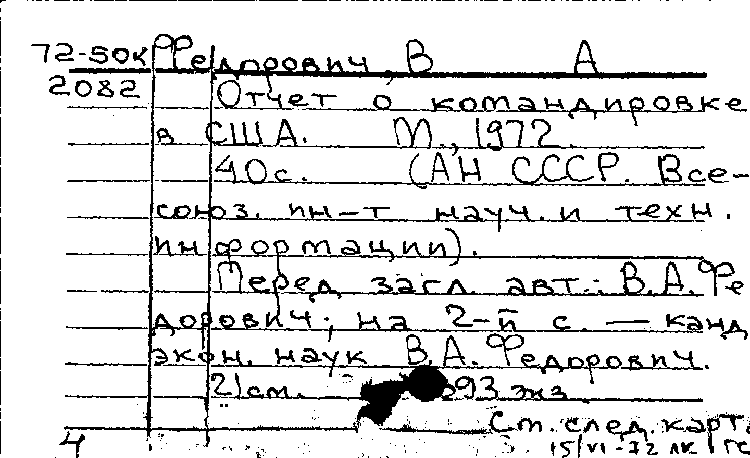 72-50к Федорович, В А
2082 Отчет о командировке
в США. М., 1972.
40с. (АН СССР. Все-
союз. ин-т науч. и техн.
информации).
Перед загл. авт.: В.А. Фе
дорович; на 2-й с. — канд
экон. наук В.А. Федорович.
21см. 93 экз.
См. след. карт.
4 15/VI-72 ЛК